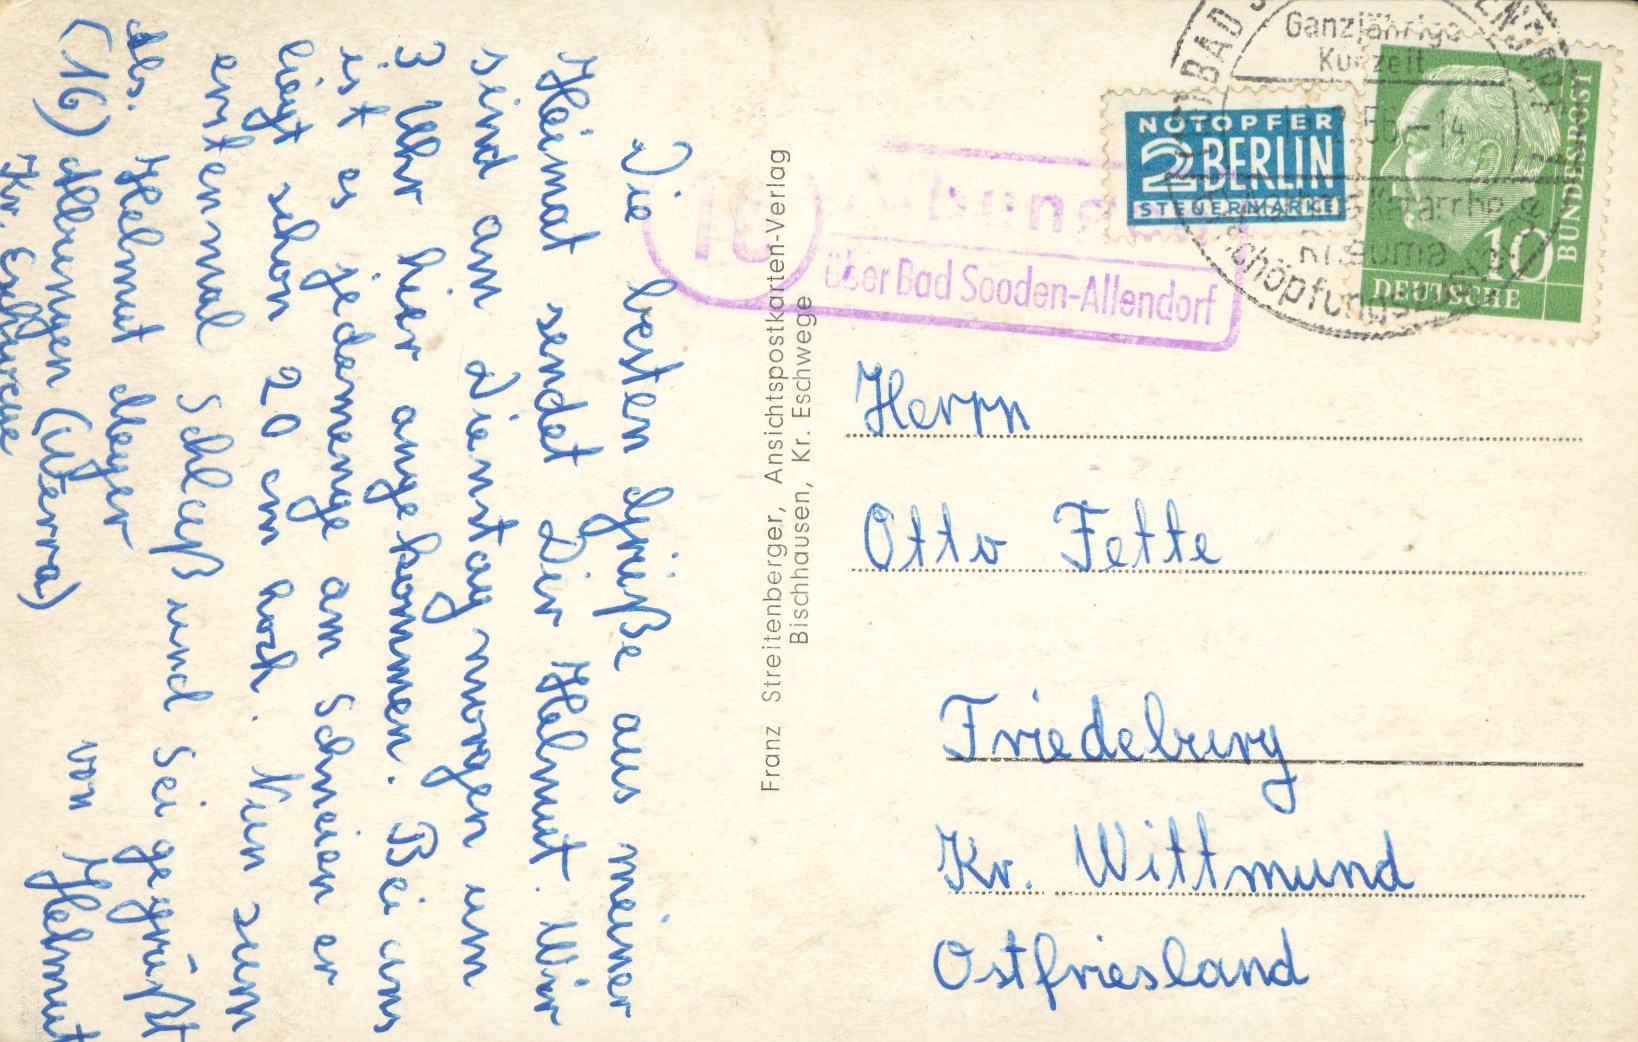 Die besten Grüße aus meiner
Heimat sendet Dir Helmut. Wir
sind am Dienstag morgen um
3 Uhr hier angekommen. Bei uns
ist es jedemenge am Schneien er
liegt schon 20 cm hoch. Nun zum
erstenmal Schluß und sei gegrüßt
von Helmut
Abs. Helmut Meyer
(16) Albungen (Werra)
Kr. Eschwege
Franz Streitenberger, Ansichtspostkarten-Verlag
Bischhausen, Kr. Eschwege
16
Albungen
über Bad Sooden-Allendorf
NOTOPFER
2 BERLIN
STEUERMARKE
BAD
Ganzjährige
Kurzeit
56-14
Katarrhe
Rheuma
DEUTSCHE
BUNDESPOST
10
Herrn
Otto Fette
Friedeburg
Kr. Wittmund
Ostfriesland